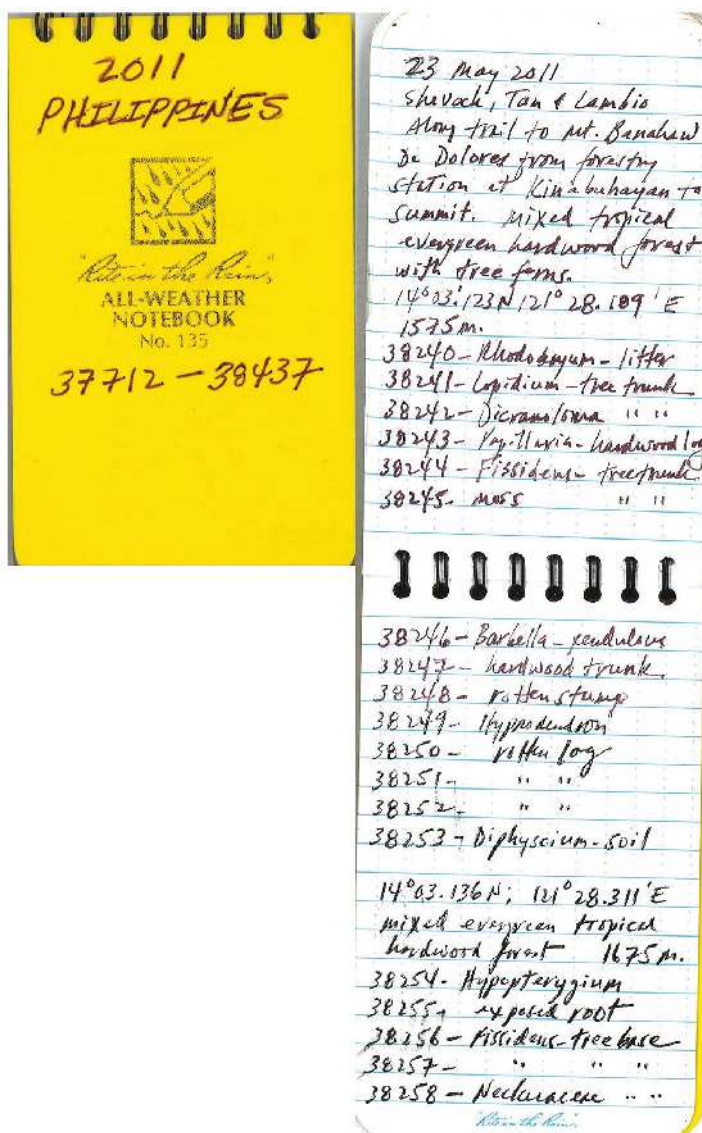 2011
PHILIPPINES
"Rite in the Rain"
ALL-WEATHER
NOTEBOOK
No. 135
37712 - 38437
23 May 2011
Shevock, Tan & Lambio
Along trail to Mt. Banahaw
De Dolores from forestry
station at Kinabuhayan to
summit. Mixed tropical
evergreen hardwood forest
with tree ferns.
14°03.123N 121°28.189'E
1575m.
38240 - Rhodobryum - litter
38241 - Lopidium - tree trunk
38242 - Dicranoloma " "
38243 - Papillaria - hardwood log
38244 - Fissidens - tree trunk
38245 - moss " "
38246 - Barbella - pendulous
38247 - hardwood trunk
38248 - rotten stump
38249 - Hypnodendron
38250 - rotten log
38251 - " "
38252 - " "
38253 - Diphyscium - soil
14°03.136N; 121°28.311'E
mixed evergreen tropical
hardwood forest 1675m.
38254 - Hypopterygium
38255 - exposed root
38256 - Fissidens - tree base
38257 - " " "
38258 - Neckeraceae " "
"Rite in the Rain"